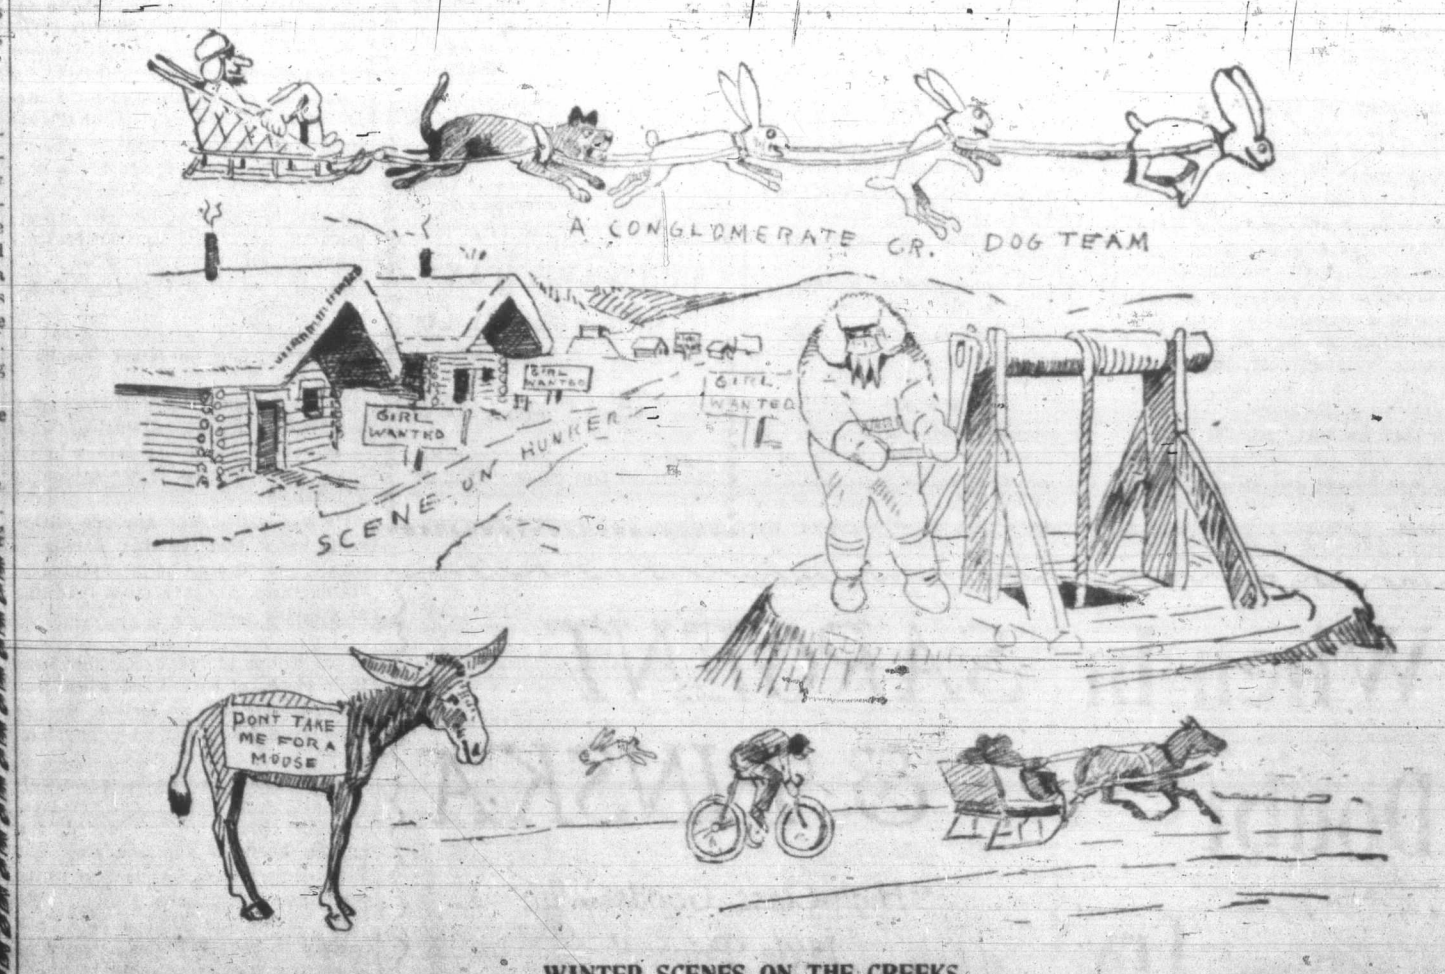 A CONGLOMERATE CR. DOG TEAM
GIRL
WANTED
GIRL
WANTED
GIRL
WANTED
SCENE ON HUNKER
DONT TAKE
ME FOR A
MOOSE
WINTER SCENES ON THE CREEKS